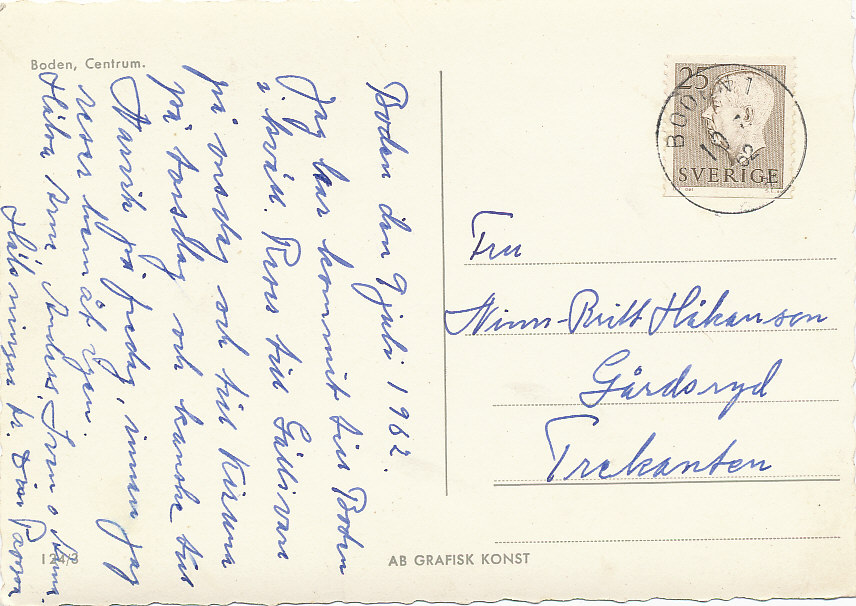 Boden, Centrum.
Boden den 9 juli 1962.
Jag har kommit till Boden
i kväll. Reser till Gällivare
på onsdag och till Kiruna
på torsdag och kanske till
Narvik på fredag, innan jag
reser hemåt igen.
Hälsa Arne, Anders, Sven o Anna.
Hälsningar fr.
124/3
AB GRAFISK KONST
25
SVERIGE
BODEN 1
62
Fru
Ninni-Britt Håkanson
Gårdsryd
Trekanten